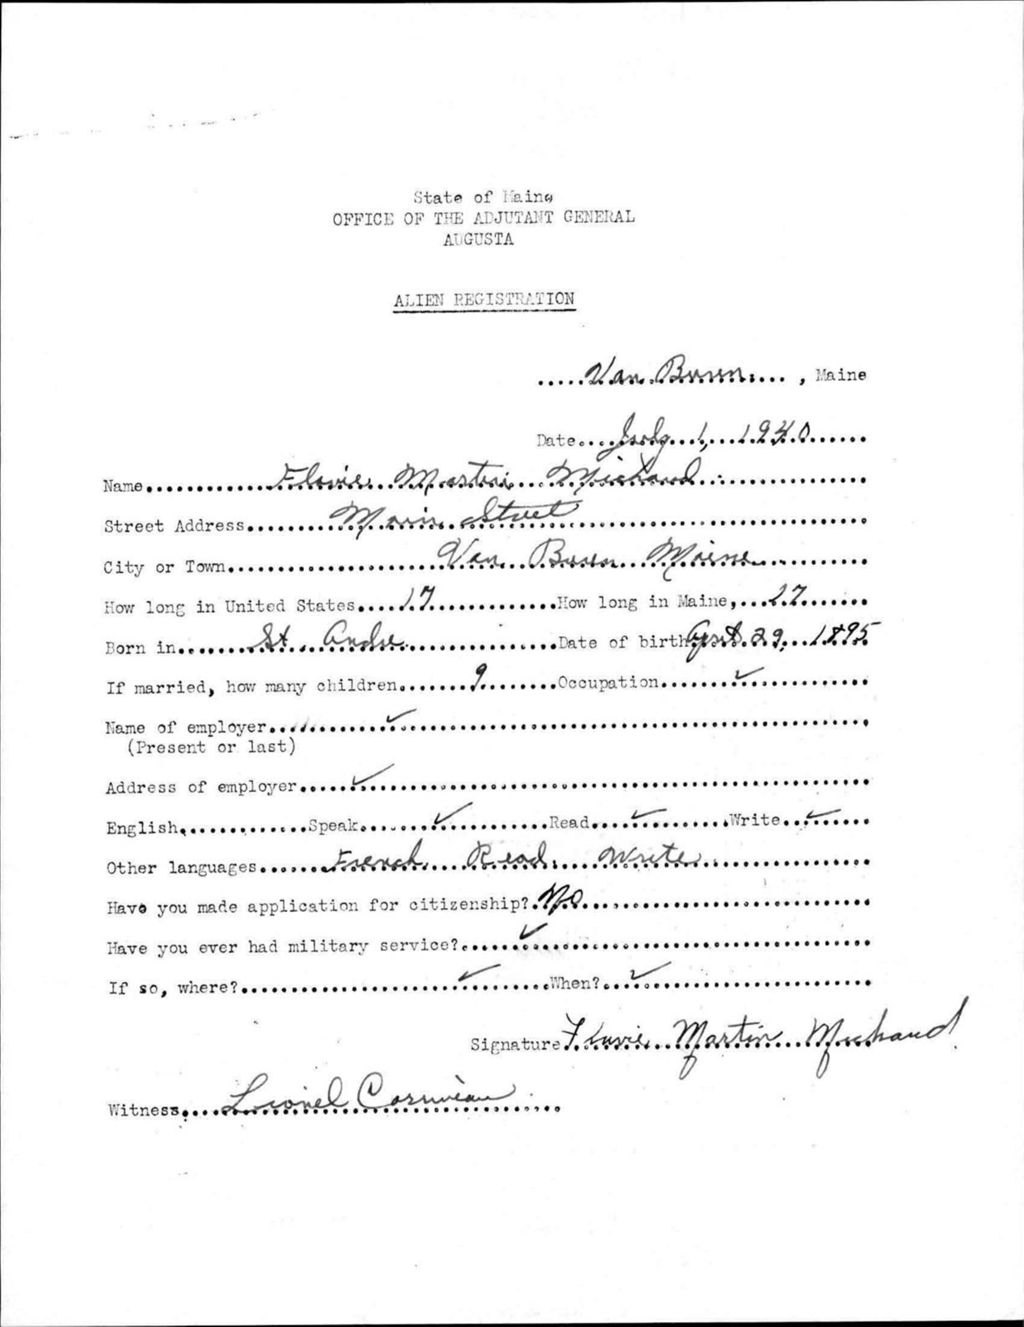 State of Maine
OFFICE OF THE ADJUTANT GENERAL
AUGUSTA
ALIEN REGISTRATION
Van Buren, Maine
Date July 1, 1940
Name Flavie Martin Michaud
Street Address Main Street
City or Town Van Buren Maine
How long in United States 17 How long in Maine, 17
Born in St. Andre Date of birth April 29, 1895
If married, how many children 9 Occupation ✓
Name of employer ✓
(Present or last)
Address of employer ✓
English Speak ✓ Read ✓ Write ✓
Other languages French Read Write
Have you made application for citizenship? No
Have you ever had military service? ✓
If so, where? ✓ When? ✓
Signature Flavie Martin Michaud
Witness Lionel Cormier